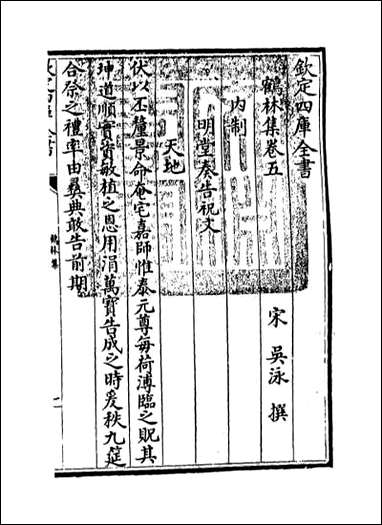 欽定四庫全書
鶴林集卷五
宋 吳泳 撰
內制
明堂奏告祝文
天地
伏以丕釐景命奄宅嘉師惟泰元尊每荷溥臨之貺其
坤道順實資敏植之恩用涓萬寶告成之時爰秩九筵
合祭之禮率由彝典敢告前期
鶴林集
一